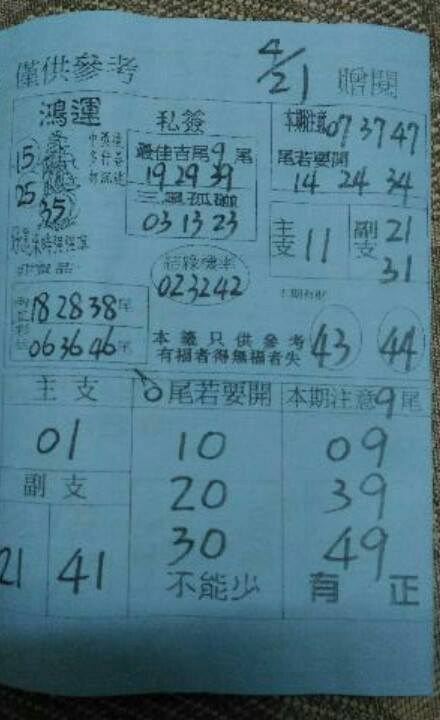 僅供參考 4/21 贈閱
鴻運
15
25
35
非賣品
私簽
最佳吉尾9尾
19 29 39
三星孤獨
03 13 23
本期注意 07 37 47
尾若要開
14 24 34
主支 11 副支 21
31
02 32 42
18 28 38 尾
06 36 46 尾
本籤只供參考
有福者得無福者失
43 44
主支
01
副支
21 41
0尾若要開
10
20
30
不能少
本期注意9尾
09
39
49
有正